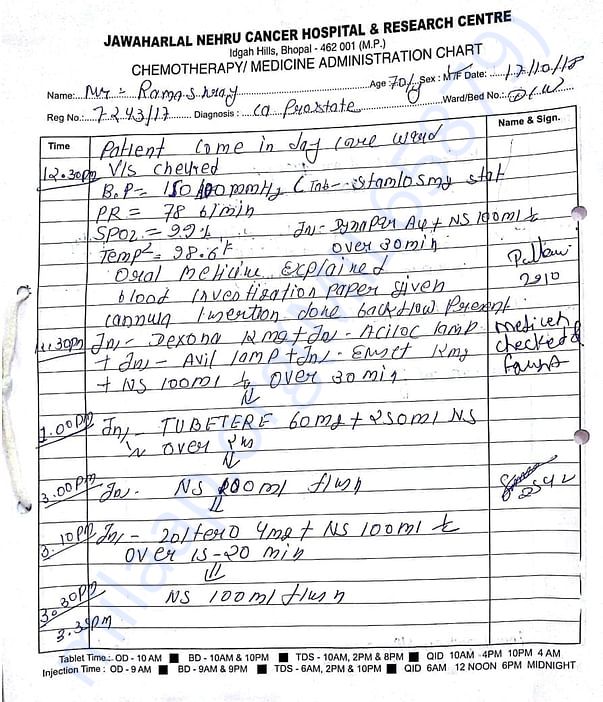 JAWAHARLAL NEHRU CANCER HOSPITAL & RESEARCH CENTRE
Idgah Hills, Bhopal - 462 001 (M.P.)
CHEMOTHERAPY/ MEDICINE ADMINISTRATION CHART
Name: Mr = Ramashray Age: 70/y Sex : M/F Date: 17/10/18
Reg No.: 7243/17 Diagnosis : Ca Prostate Ward/Bed No.: DCW
Time Name & Sign.
Patient Come in day care ward
12.30pm V/s checked
B.P = mmHg ( Tab - stamlo 5mg stat
PR = 78 b/min
SPO2 = 99% Inj - Dynapar AQ + NS 100ml
Temp = 98.6 F over 30min
Oral Medicine Explained
blood investigation paper given
cannula insertion done backflow Present
.30pm Inj - Dexona 12mg + Inj - Aciloc 1amp
+ Inj - Avil 1amp + Inj - Emset mg
+ NS 100ml over 30 min
Pallavi
2910
Medicine
checked
1.00pm Inj - TUBETERE 60mg + 250ml NS
over
3.00pm Inj - NS 100ml flush
2542
3.10pm Inj - Zoltero 4mg + NS 100ml
over 15-20 min
3.30pm NS 100ml flush
3.35pm
Tablet Time : OD - 10 AM ■ BD - 10AM & 10PM ■ TDS - 10AM, 2PM & 8PM ■ QID 10AM - 4PM 10PM 4 AM
Injection Time : OD - 9 AM ■ BD - 9AM & 9PM ■ TDS - 6AM, 2PM & 10PM ■ QID 6AM 12 NOON 6PM MIDNIGHT